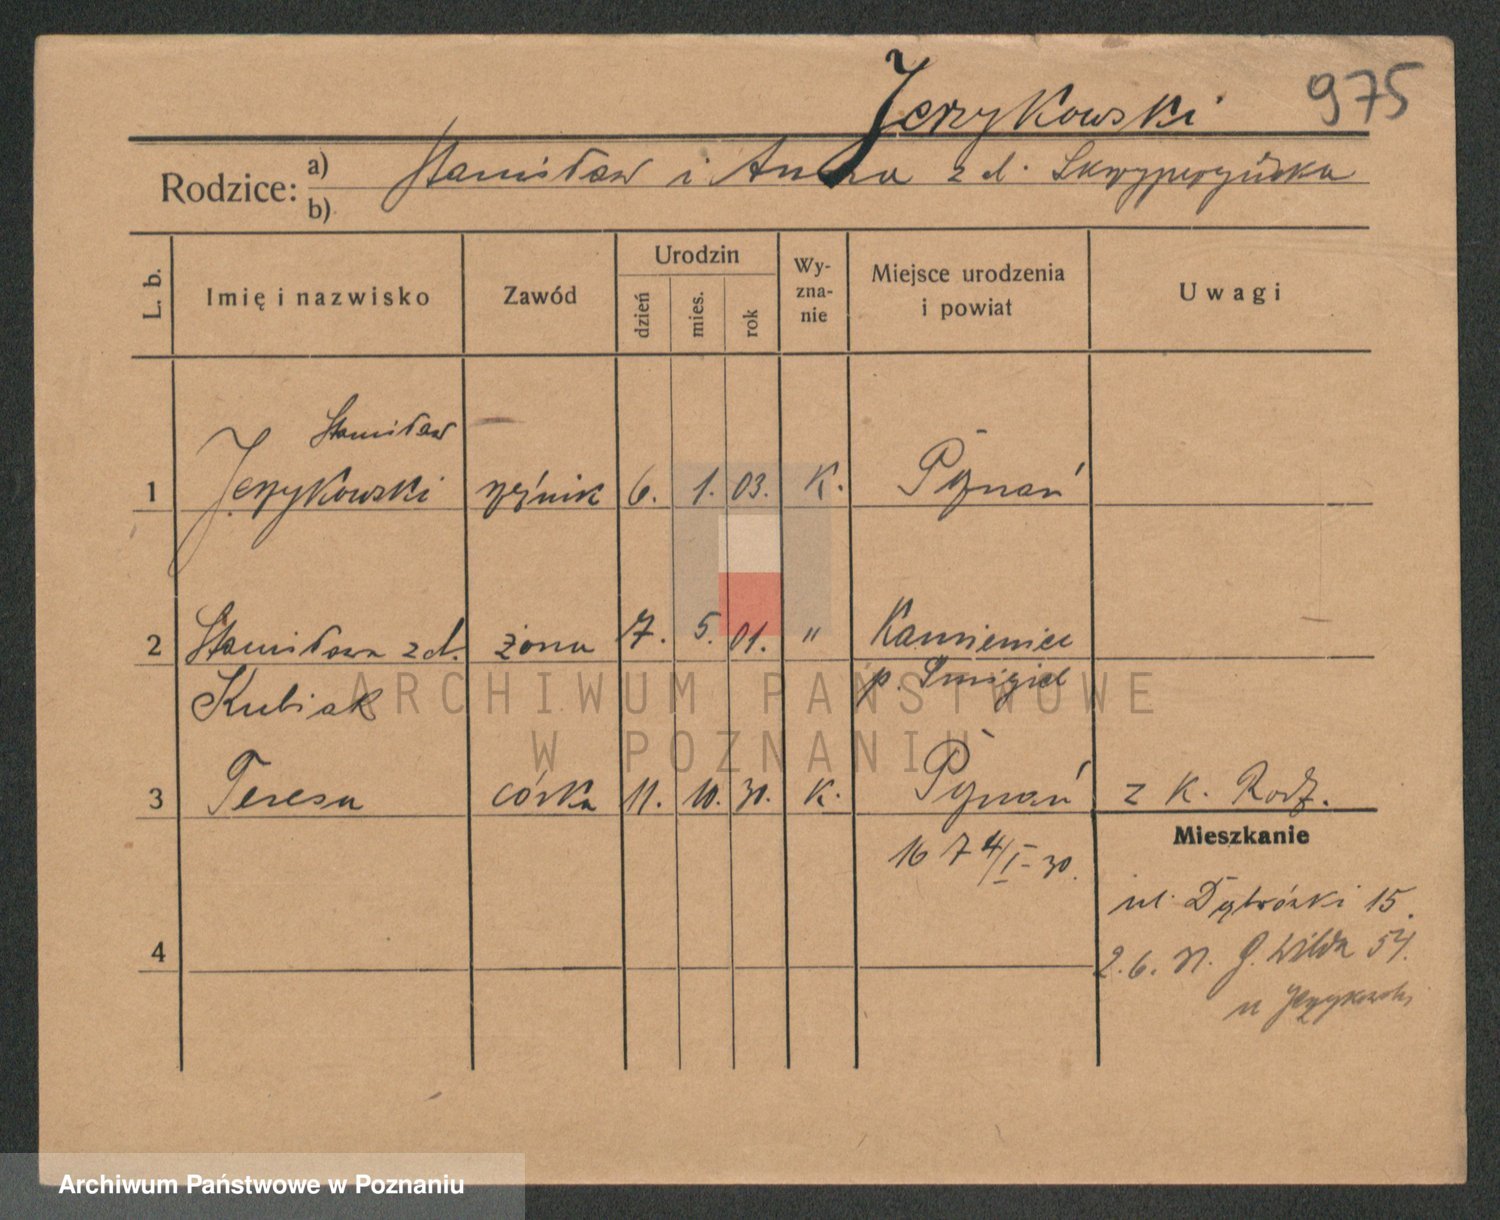 Jerzykowski 975
Rodzice: a) Stanisław i Anna z d.
b)
L. b. Imię i nazwisko Zawód Urodzin dzień mies. rok Wyznanie Miejsce urodzenia i powiat Uwagi
Stanisław
1 Jerzykowski rzeźnik 6. 1. 03. K. Poznań
2 Stanisława z d. żona 7. 5. 01. " Kamieniec
Kubiak p. Śmigiel
3 Teresa córka 11. 10. 30. K. Poznań z K. Rodz.
Mieszkanie
16 7 4/I-30.
ul. Dąbrówki 15.
4
2.6. G. Wilda 54.
u Jerzykowski
ARCHIWUM PAŃSTWOWE
W POZNANIU
Archiwum Państwowe w Poznaniu